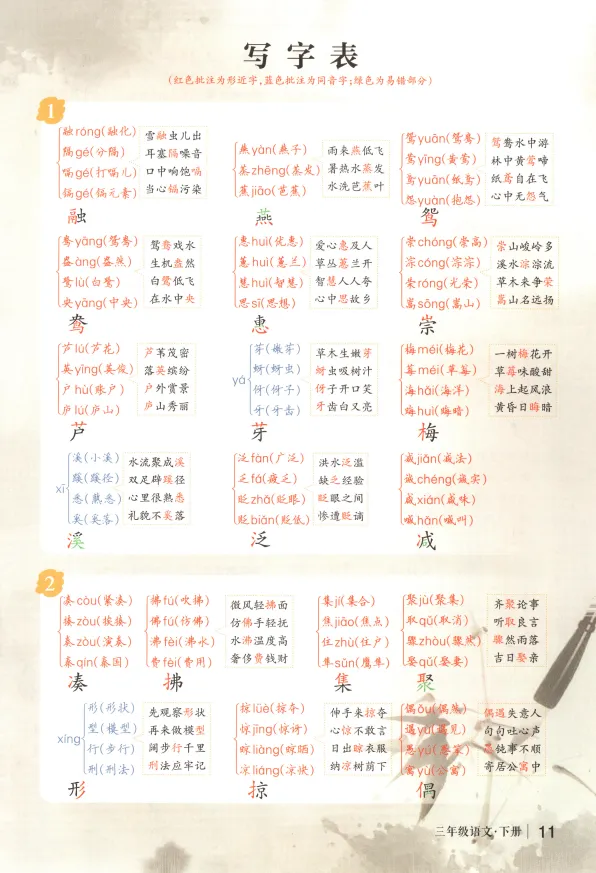 写字表
(红色批注为形近字,蓝色批注为同音字;绿色为易错部分)
1
融róng(融化)
隔gé(分隔)
嗝gé(打嗝儿)
镉gé(镉元素)
雪融虫儿出
耳塞隔噪音
口中响饱嗝
当心镉污染
融
燕yàn(燕子)
蒸zhēng(蒸发)
蕉jiāo(芭蕉)
雨来燕低飞
暑热水蒸发
水洗芭蕉叶
燕
鸳yuān(鸳鸯)
莺yīng(黄莺)
鸢yuān(纸鸢)
怨yuàn(抱怨)
鸳鸯水中游
林中黄莺啼
纸鸢自在飞
心中无怨气
鸳
鸯yāng(鸳鸯)
盎àng(盎然)
鹭lù(白鹭)
央yāng(中央)
鸳鸯戏水
生机盎然
白鹭低飞
在水中央
鸯
惠huì(优惠)
蕙huì(蕙兰)
慧huì(智慧)
思sī(思想)
爱心惠及人
草丛蕙兰开
智慧人人夸
心中思故乡
惠
崇chóng(崇高)
淙cóng(淙淙)
荣róng(光荣)
嵩sōng(嵩山)
崇山峻岭多
溪水淙淙流
草木来争荣
嵩山名远扬
崇
芦lú(芦花)
英yīng(英俊)
户hù(账户)
庐lú(庐山)
芦苇茂密
落英缤纷
户外赏景
庐山秀丽
芦
yá
芽(嫩芽)
蚜(蚜虫)
伢(伢子)
牙(牙齿)
草木生嫩芽
蚜虫吸树汁
伢子开口笑
牙齿白又亮
芽
梅méi(梅花)
莓méi(草莓)
海hǎi(海洋)
晦huì(晦暗)
一树梅花开
草莓味酸甜
海上起风浪
黄昏日晦暗
梅
xī
溪(小溪)
蹊(蹊径)
悉(熟悉)
奚(奚落)
水流聚成溪
双足辟蹊径
心里很熟悉
礼貌不奚落
溪
泛fàn(广泛)
乏fá(疲乏)
眨zhǎ(眨眼)
贬biǎn(贬低)
洪水泛滥
缺乏经验
眨眼之间
惨遭贬谪
泛
减jiǎn(减法)
诚chéng(诚实)
咸xián(咸味)
喊hǎn(喊叫)
减
2
凑còu(紧凑)
揍zòu(挨揍)
奏zòu(演奏)
秦qín(秦国)
凑
拂fú(吹拂)
佛fú(仿佛)
沸fèi(沸水)
费fèi(费用)
微风轻拂面
仿佛手轻抚
水沸温度高
奢侈费钱财
拂
集jí(集合)
焦jiāo(焦点)
住zhù(住户)
隼sǔn(鹰隼)
集
聚jù(聚集)
取qǔ(取消)
骤zhòu(骤然)
娶qǔ(娶妻)
齐聚论事
听取良言
骤然雨落
吉日娶亲
聚
xíng
形(形状)
型(模型)
行(步行)
刑(刑法)
先观察形状
再来做模型
阔步行千里
刑法应牢记
形
掠lüè(掠夺)
惊jīng(惊讶)
晾liàng(晾晒)
凉liáng(凉快)
伸手来掠夺
心惊不敢言
日出晾衣服
纳凉树荫下
掠
偶ǒu(偶然)
遇yù(遇见)
愚yú(愚蠢)
寓yù(公寓)
偶遇失意人
句句吐心声
愚钝事不顺
寄居公寓中
偶
三年级语文·下册 11